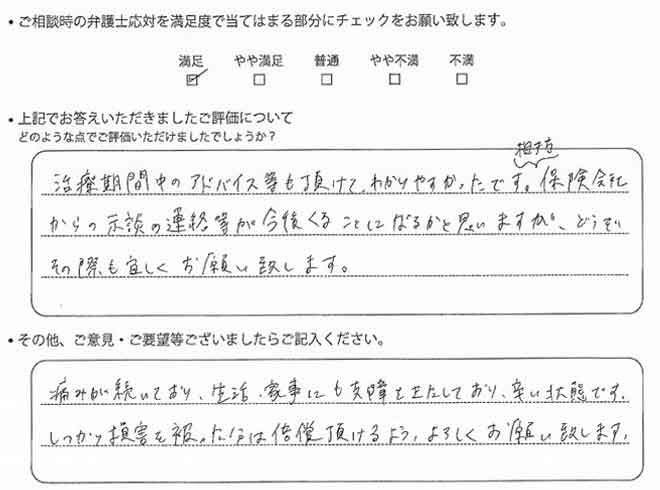 ・ご相談時の弁護士応対を満足度で当てはまる部分にチェックをお願い致します。
満足 やや満足 普通 やや不満 不満
・上記でお答えいただきましたご評価について
どのような点でご評価いただけましたでしょうか？
相手方
治療期間中のアドバイス等も頂けて、わかりやすかったです。保険会社
からの示談の連絡等が今後くることになるかと思いますが、どうぞ
その際も宜しくお願い致します。
・その他、ご意見・ご要望等ございましたらご記入ください。
痛みが続いており、生活、家事にも支障をきたしており、辛い状態です。
しっかり損害を被った分は賠償頂けるよう、よろしくお願い致します。